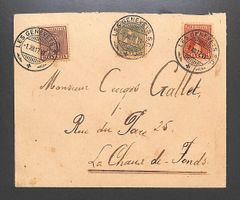 LES GENEVEYS S.C.
LES GENEVEYS S.C.
LES GENEVEYS S.C.
Monsieur Georges Gallet,
Rue du Parc 25.
La Chaux-de-Fonds.